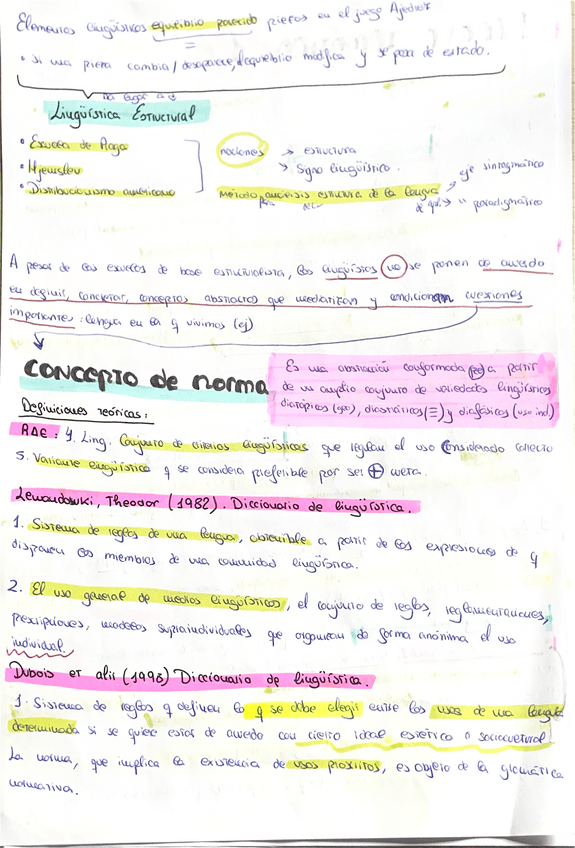 Elementos lingüísticos equilibrio parecido piezas en el juego Ajedrez
=
• Si una pieza cambia/desaparece, dequilibrio modifica y se pasa de estado.
da lugar a
Lingüística Estructural
• Escuela de Praga
• Hjemslev
• Distribucionismo americano
nociones → estructura
→ Signo lingüístico.
Método para análisis estructura de la lengua → eje sintagmático
→ " paradigmático
A pesar de las escuelas de base estructuralista, los lingüistas no se ponen de acuerdo
en definir, concretar, conceptos abstractos que mediatizan y condicionan cuestiones
importantes: lengua en la q vivimos (ej)
CONCEPTO de norma
Es una abstracción conformada a partir
de un amplio conjunto de variedades lingüísticas
diatópicas (geo), diastráticas (=) y diafásicas (uso ind)
Definiciones teóricas:
RAE: 4. Ling. Conjunto de criterios lingüísticos que regulan el uso considerado correcto
5. Variante lingüística q se considera preferible por ser + culta.
Lewandowski, Theodor (1982). Diccionario de lingüística.
1. Sistema de reglas de una lengua, obtenible a partir de las expresiones de q
disponen los miembros de una comunidad lingüística.
2. El uso general de medios lingüísticos, el conjunto de reglas, reglamentaciones,
prescripciones, modelos supraindividuales que organizan de forma anónima el uso
individual.
Dubois et alii (1998) Diccionario de lingüística.
1. Sistema de reglas q definen lo q se debe elegir entre los usos de una lengua
determinada si se quiere estar de acuerdo con cierto ideal estético o sociocultural.
La norma, que implica la existencia de usos proscritos, es objeto de la gramática
normativa.